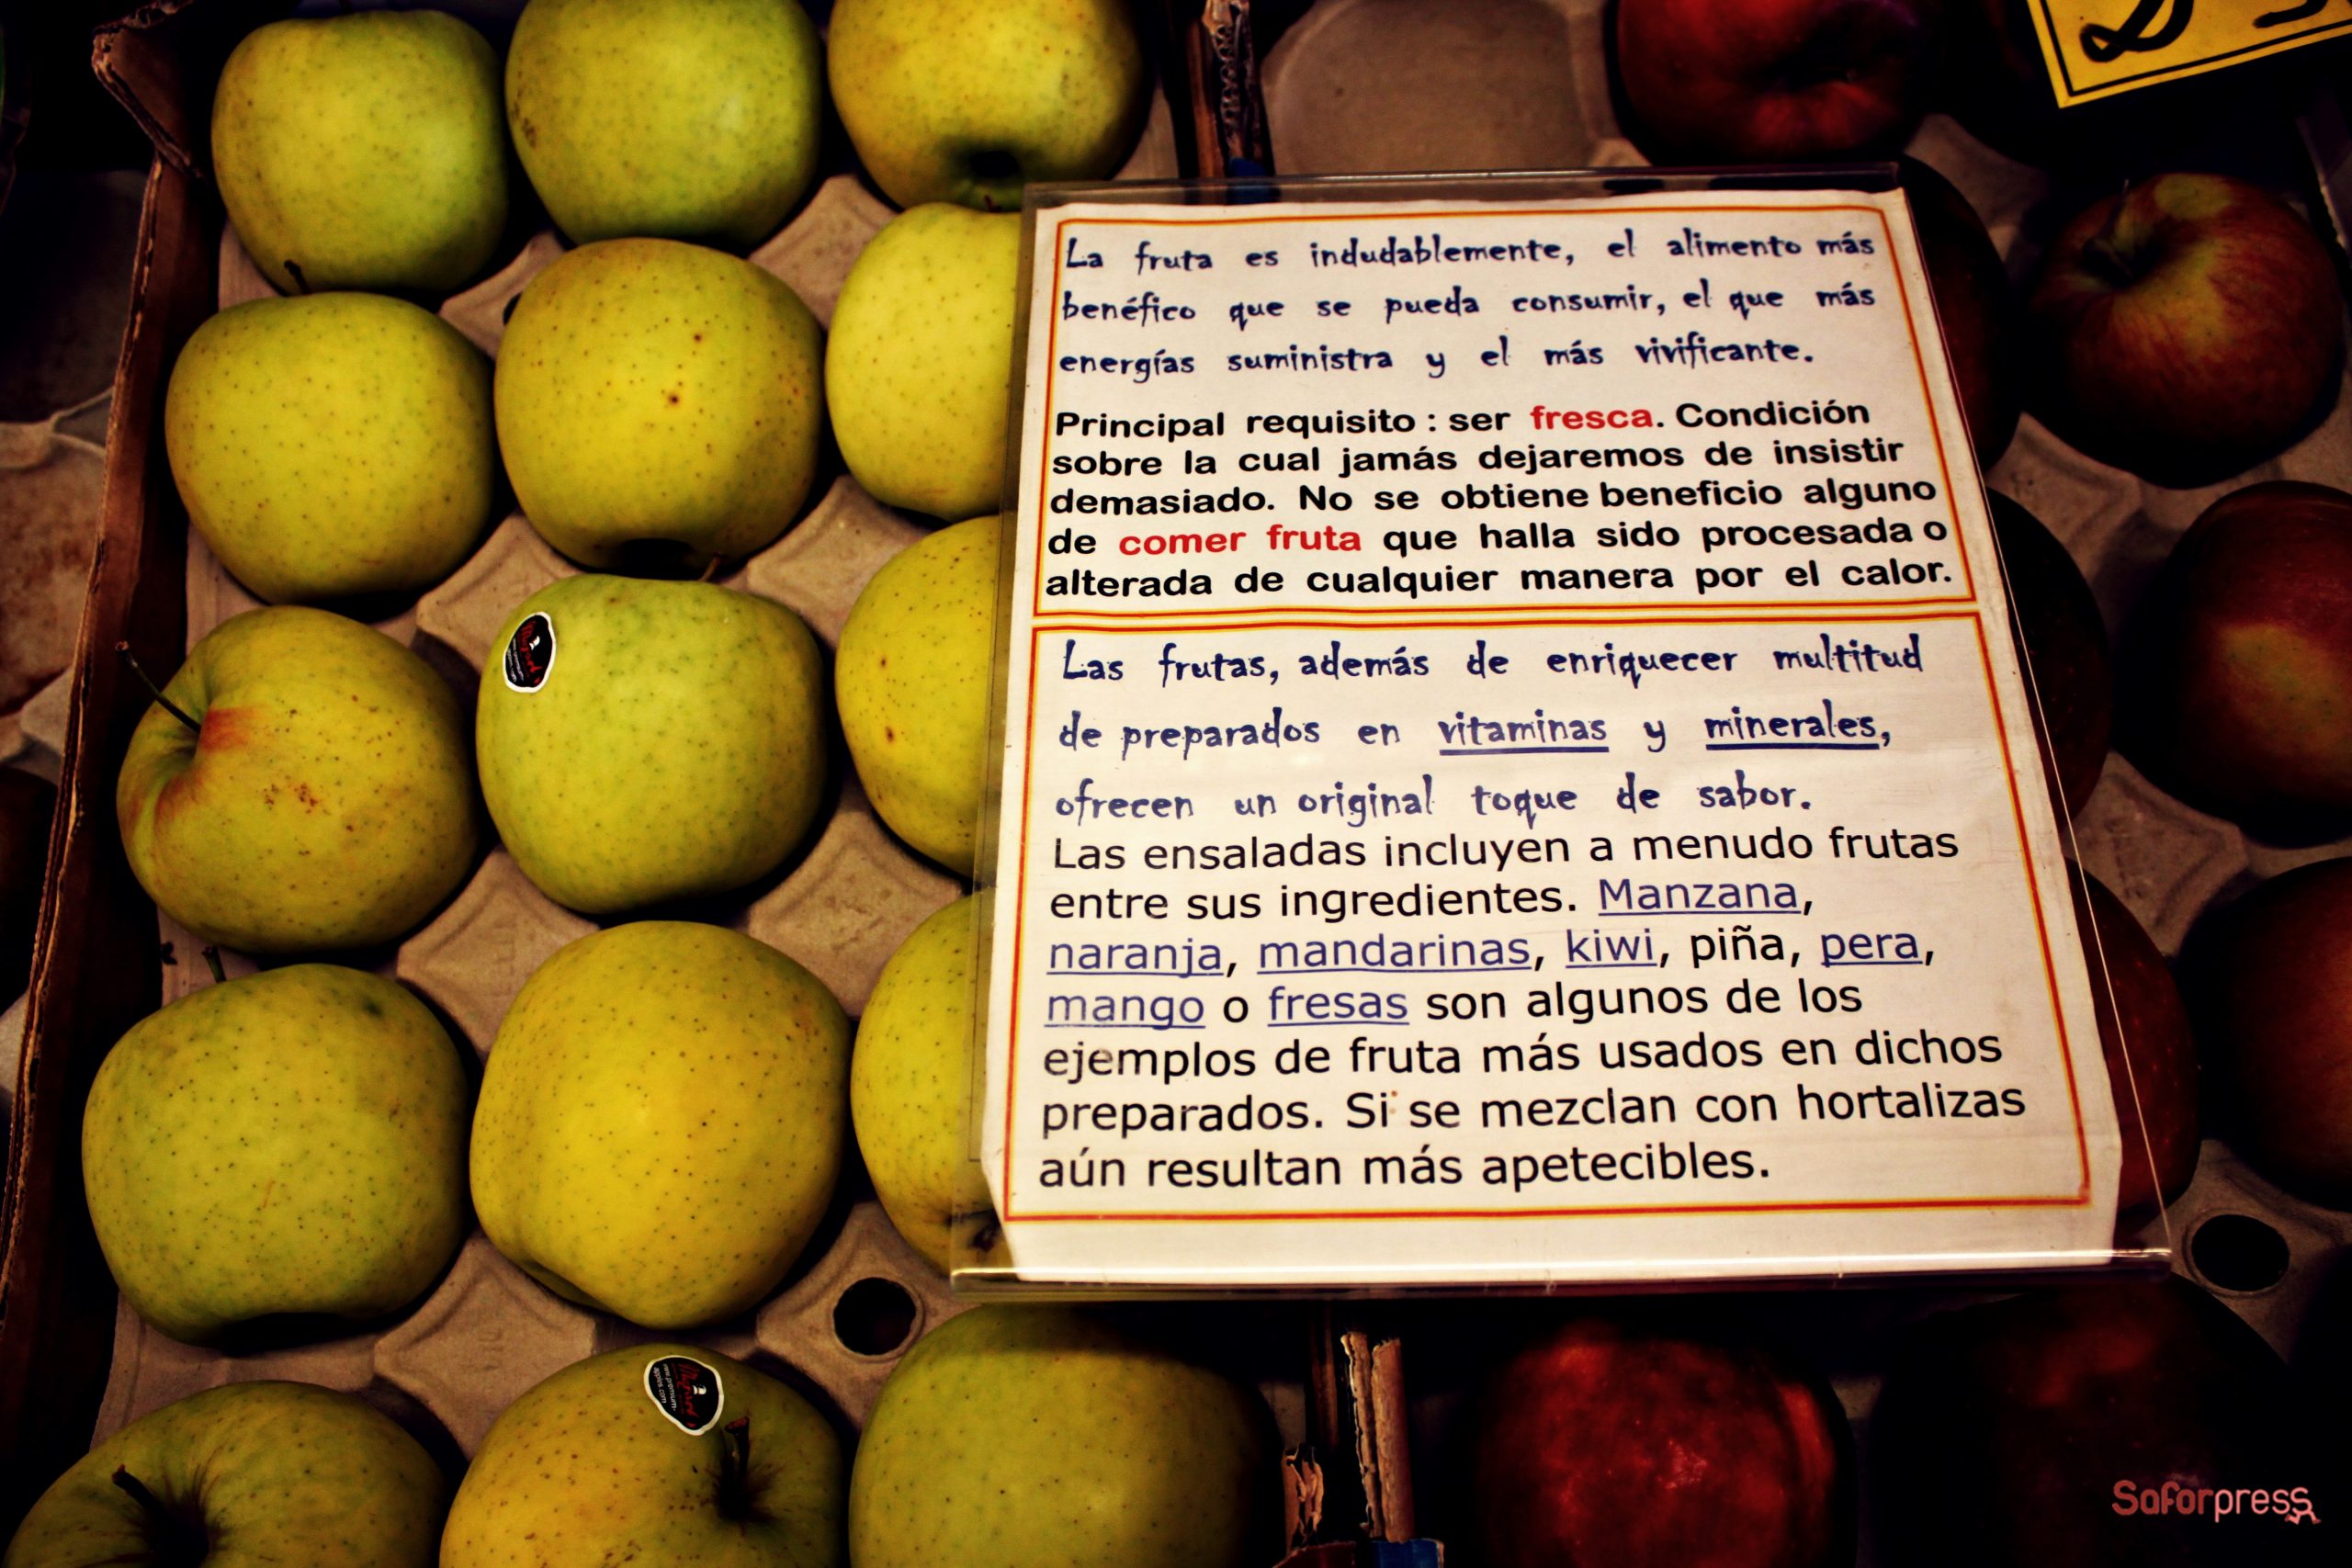 La fruta es indudablemente, el alimento más
benéfico que se pueda consumir, el que más
energías suministra y el más vivificante.
Principal requisito : ser fresca. Condición
sobre la cual jamás dejaremos de insistir
demasiado. No se obtiene beneficio alguno
de comer fruta que halla sido procesada o
alterada de cualquier manera por el calor.
Las frutas, además de enriquecer multitud
de preparados en vitaminas y minerales,
ofrecen un original toque de sabor.
Las ensaladas incluyen a menudo frutas
entre sus ingredientes. Manzana,
naranja, mandarinas, kiwi, piña, pera,
mango o fresas son algunos de los
ejemplos de fruta más usados en dichos
preparados. Si se mezclan con hortalizas
aún resultan más apetecibles.
Saforpress